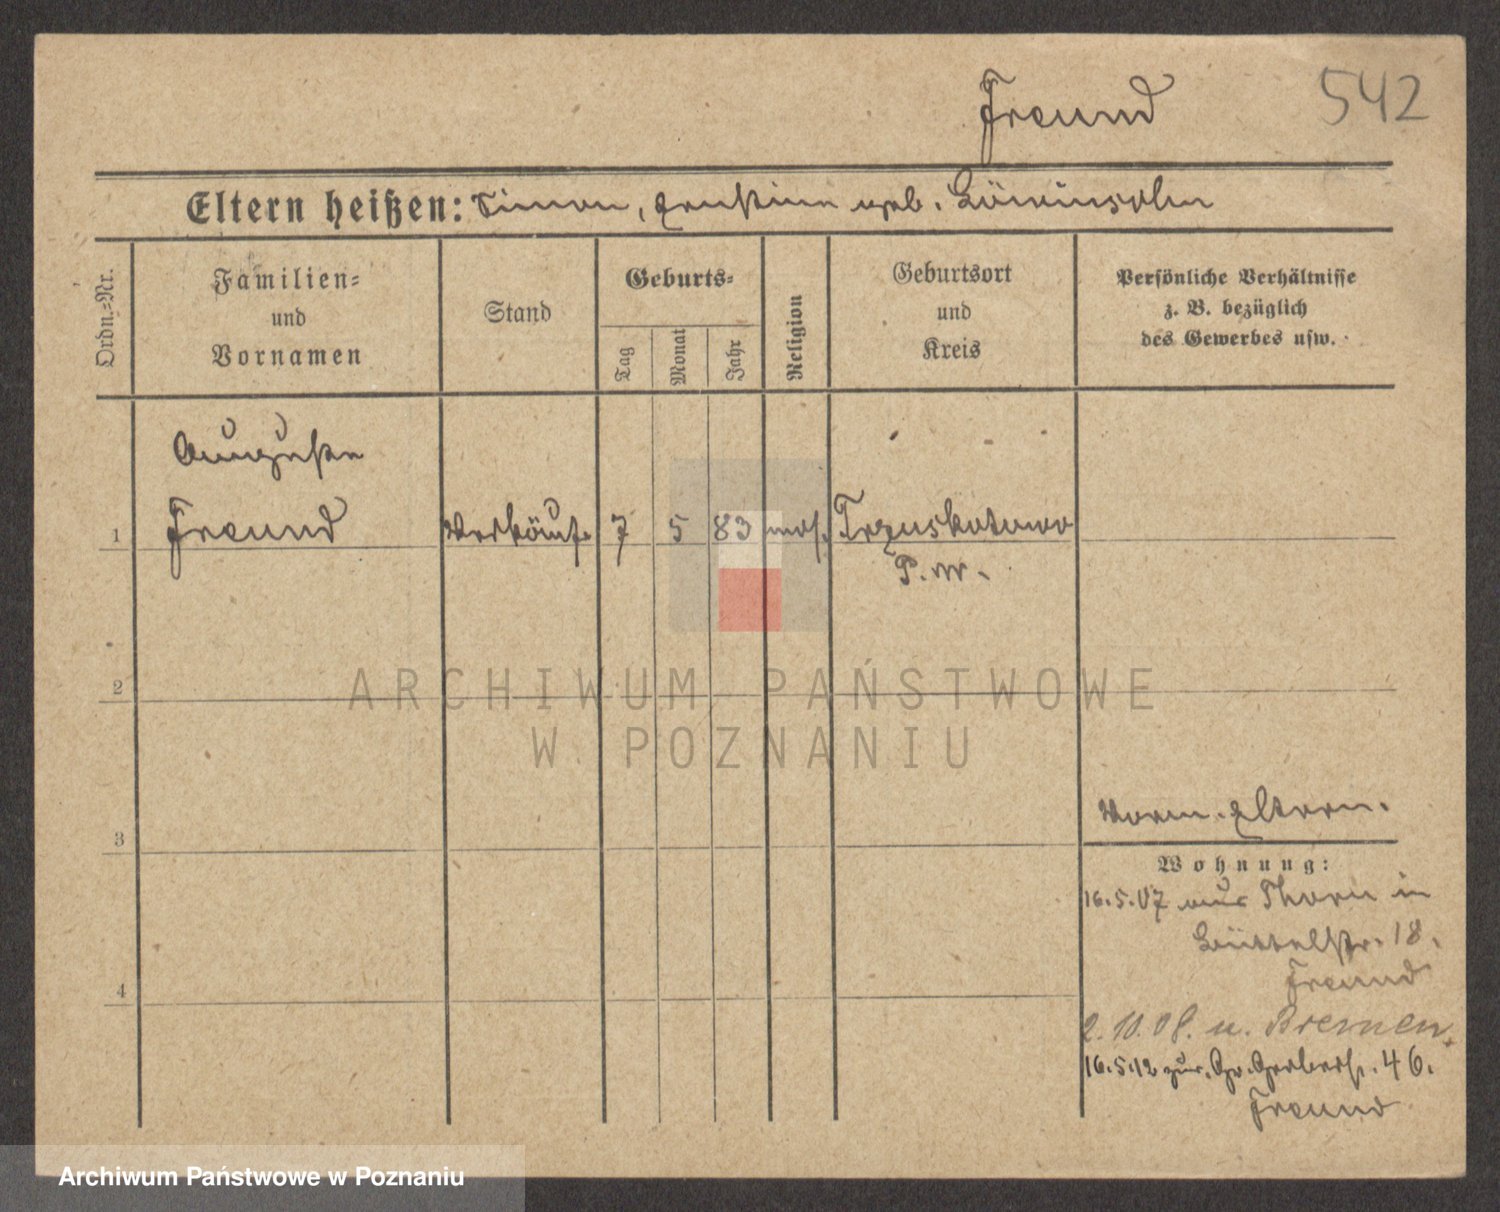 Freund
542
Eltern heißen: Simon, Ernstine geb. Löwinsohn
Ordn.-Nr.
Familien-
und
Vornamen
Stand
Geburts-
Tag
Monat
Jahr
Religion
Geburtsort
und
Kreis
Persönliche Verhältnisse
z. B. bezüglich
des Gewerbes usw.
Auguste
1 Freund Verkäuf. 7 5 83 mos. Trzuskotowo
P. W.
2
3
4
Vorm. Eltern.
Wohnung:
16.5.07 aus Thorn in
Büttelstr. 18.
Freund
2.10.08. n. Bremen.
16.5.12 zur. Gr. Gerberstr. 46.
Freund
ARCHIWUM PAŃSTWOWE
W POZNANIU
Archiwum Państwowe w Poznaniu